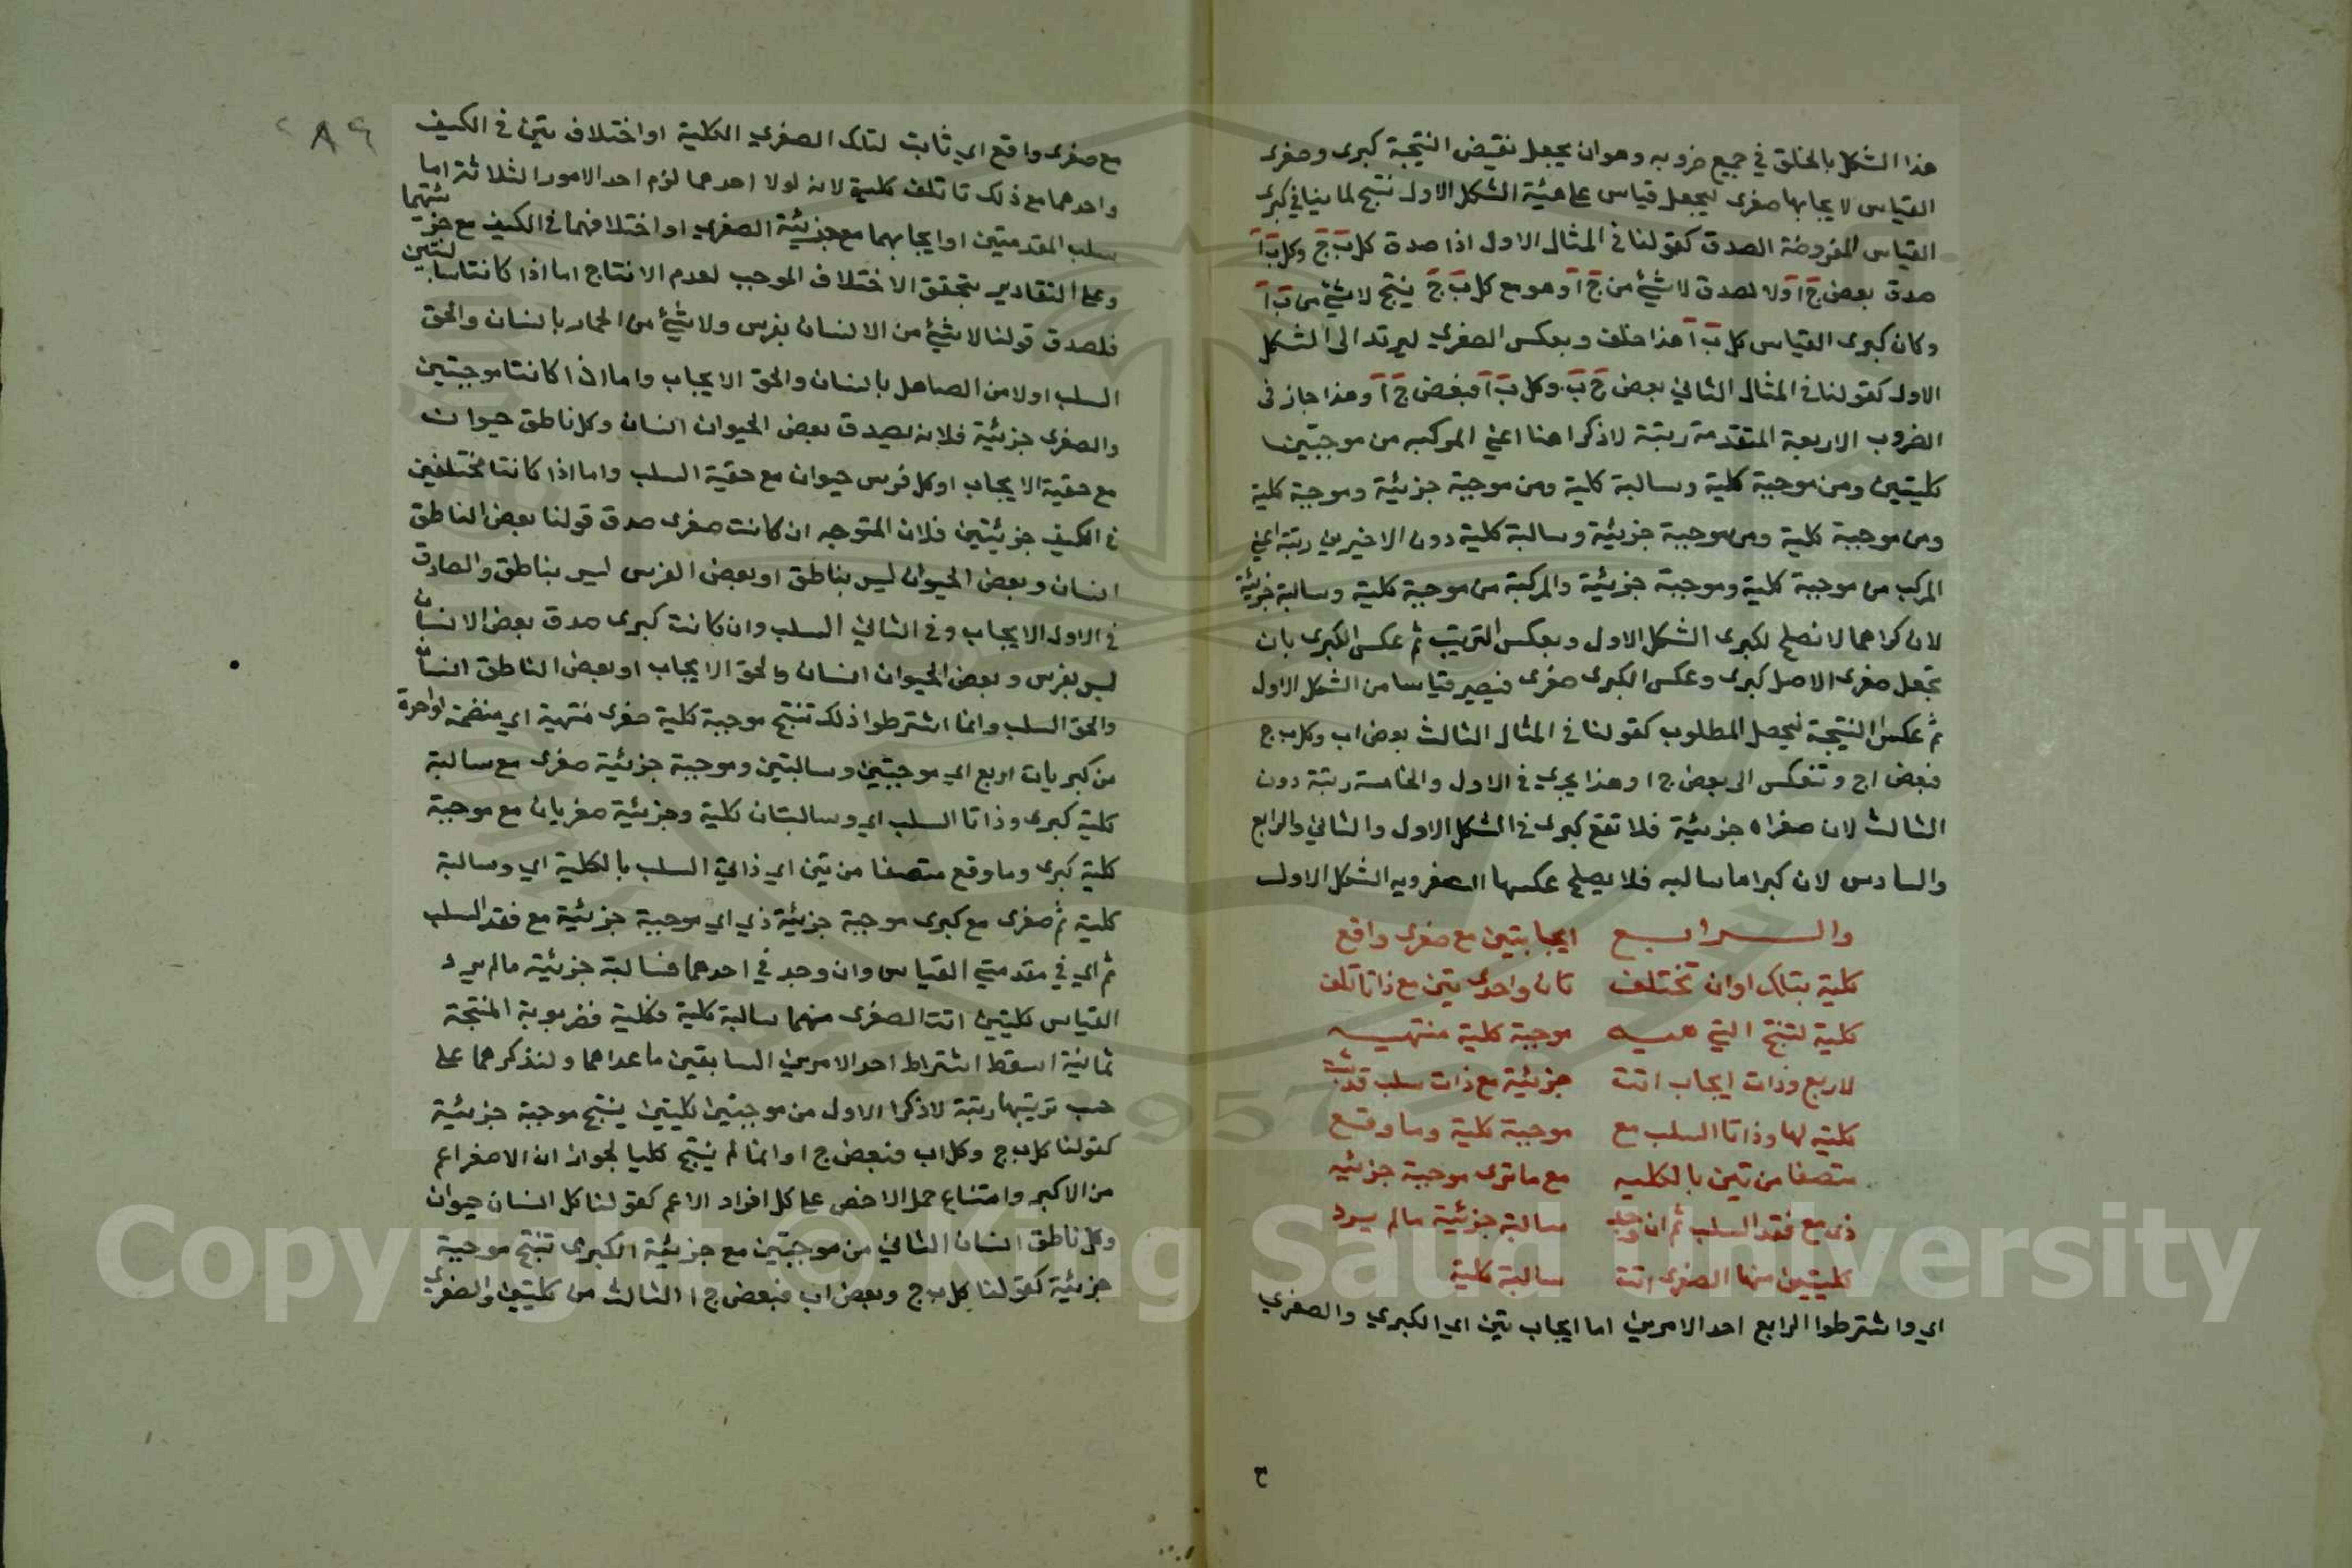 هذا الشكل بالخلق في جميع ضروبه وهو ان يجعل نقيض النتيجة كبرى وصغرى
القياس لايجابها صغرى ليجعل قياس على هيئة الشكل الاول نتج لما ينافي كبرى
القياس المفروضة الصدق كقولنا في المثال الاول اذا صدق كل ب ج وكل ب ا
صدق بعض ج ا ولا لصدق لا شيئ من ج ا وهو مع كل ب ج ينتج لا شيئ من ب ا
وكان كبرى القياس كل ب ا هذا خلف وبعكس الصغري ليرتد الى الشكل
الاول كقولنا في المثال الثاني بعض ج ب وكل ب ا فبعض ج ا وهذا جاز فى
الضروب الاربعة المتقدمة رتبة لا ذكرا هنا اعني المركبه من موجبتين
كليتين ومن موجبة كلية وسالبة كلية ومن موجبة جزئية وموجبة كلية
ومن موجبة كلية ومن موجبة جزئية وسالبة كلية دون الاخيرين رتبة اعني
المركب من موجبة كلية وموجبة جزئية والمركبة من موجبة كلية وسالبة جزئية
لان كبراهما لا تصلح لكبرى الشكل الاول وبعكس الترتيب ثم عكس الكبرى بان
تجعل صغرى الاصل كبرى وعكس الكبرى صغرى فيصير قياسا من الشكل الاول
ثم عكس النتيجة ليحصل المطلوب كقولنا في المثال الثالث بعض اب وكل ب ج
فبعض اج وتنعكس الى بعض ج ا وهذا يجري في الاول والخامسة رتبة دون
الثالث لان صغراه جزئية فلا تقع كبرى في الشكل الاول والثاني والرابع
والسادس لان كبراها سالبه فلا يصلح عكسها الصغرويه الشكل الاول
والرابع ايجابتين مع صغرى واقع
كلية بتلك او ان تختلف تان واحدى تين مع ذا تاتلف
كلية لتنتج التي هيه موجبة كلية منتهيه
لاربع وذات ايجاب اتت جزئية مع ذات سلب قد
كلية لها وذاتا السلب مع موجبة كلية وما وقع
متصفا من تين بالكليه مع ما ترى موجبة جزئيه
ذى مع فقد السلب ثم ان وجد سالبة جزئية مالم يرد
كليتين منها الصغرى اتت سالبة كلية
اي واشترطوا الرابع احد الامرين اما ايجاب تين اي الكبري والصغري
ح
٨٩
مع صغرى واقع اي ثابت لتلك الصغري الكلية او اختلاف تين في الكيف
واحدهما مع ذلك تاتلف كلية لانه لولا احدهما لزم احد الامور الثلاثة اما
سلب المقدمتين او ايجابهما مع جزئية الصغرى او اختلافهما في الكيف مع جزئيتهما
وعلى التقادير يتحقق الاختلاف الموجب لعدم الانتاج اما اذا كانتا سالبتين
فلصدق قولنا لا شيئ من الانسان بفرس ولا شيئ من الحمار بانسان والحق
السلب اولا من الصاهل بانسان والحق الايجاب واما اذا كانتا موجبتين
والصغرى جزئية فلانه يصدق بعض الحيوان انسان وكل ناطق حيوان
مع حقية الايجاب او كل فرس حيوان مع حقية السلب واما اذا كانتا مختلفين
في الكيف جزئيتين فلان المتوجبه ان كانت صغرى صدق قولنا بعض الناطق
انسان وبعض الحيوان ليس بناطق او بعض الفرس ليس بناطق والصادق
في الاول الايجاب وفي الثاني السلب وان كانت كبرى صدق بعض الانسان
ليس بفرس وبعض الحيوان انسان والحق الايجاب او بعض الناطق انسان
والحق السلب وانما اشترطوا ذلك تنتج موجبة كلية صغرى منتهية اي منضمة لواحدة
من كبريات اربع اي موجبتين وسالبتين وموجبة جزئية صغرى مع سالبة
كلية كبرى وذاتا السلب اي وسالبتان كلية وجزئية صغريان مع موجبة
كلية كبرى وما وقع متصفا من تين اي ذاتي السلب بالكلية اي وسالبة
كلية ثم صغرى مع كبرى موجبة جزئية ذي اي موجبة جزئية مع فقد السلب
ثم اي في مقدمتي القياس وان وجد في احدهما فسالبة جزئية مالم يرد
القياس كليتين اتت الصغرى منهما سالبة كلية فكلية فضروبه المنتجة
ثمانية اسقط اشتراط احد الامرين السابقين ماعداهما ولنذكرهما على
حسب ترتيبها رتبة لا ذكرا الاول من موجبتين كليتين ينتج موجبة جزئية
كقولنا كل ب ج وكل اب فبعض ج ا وانما لم ينتج كليا لجواز ان الاصغر اعم
من الاكبر وامتناع حمل الاخص على كل افراد الاعم كقولنا كل انسان حيوان
وكل ناطق انسان الثاني من موجبتين مع جزئية الكبرى تنتج موجبة
جزئية كقولنا كل ب ج وبعض اب فبعض ج ا الثالث من كليتين والصغرى
Copyright © King Saud University
1957